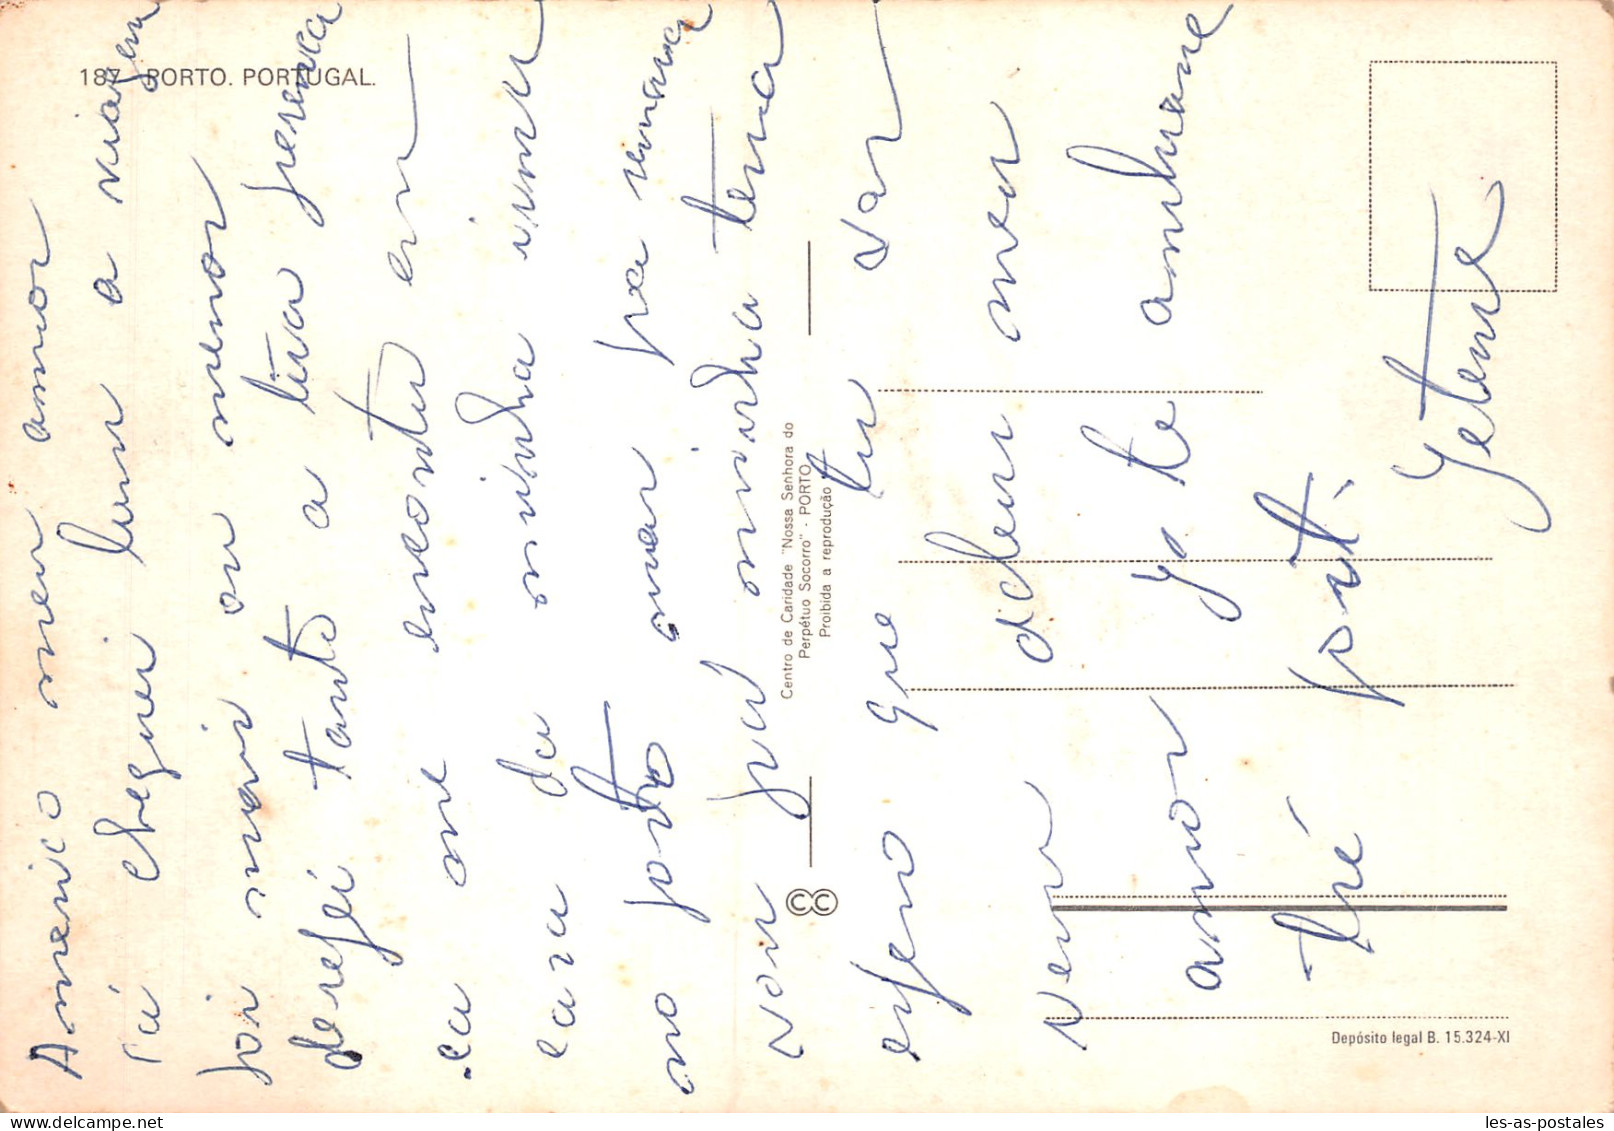 187 PORTO. PORTUGAL.
Americo meu amor
cá cheguei bem a viagem
foi mari ou menor
deregei tanto a tua perenca
ca me encontre em
cara da minha irma
no porto mar pra remana
vou pra minha terra
espero que tu var
vem deben meu
amor ja te am
tré port.
Centro de Caridade "Nossa Senhora do
Perpétuo Socorro" - PORTO
Proibida a reprodução
Depósito legal B. 15.324-XI
les-as-postales